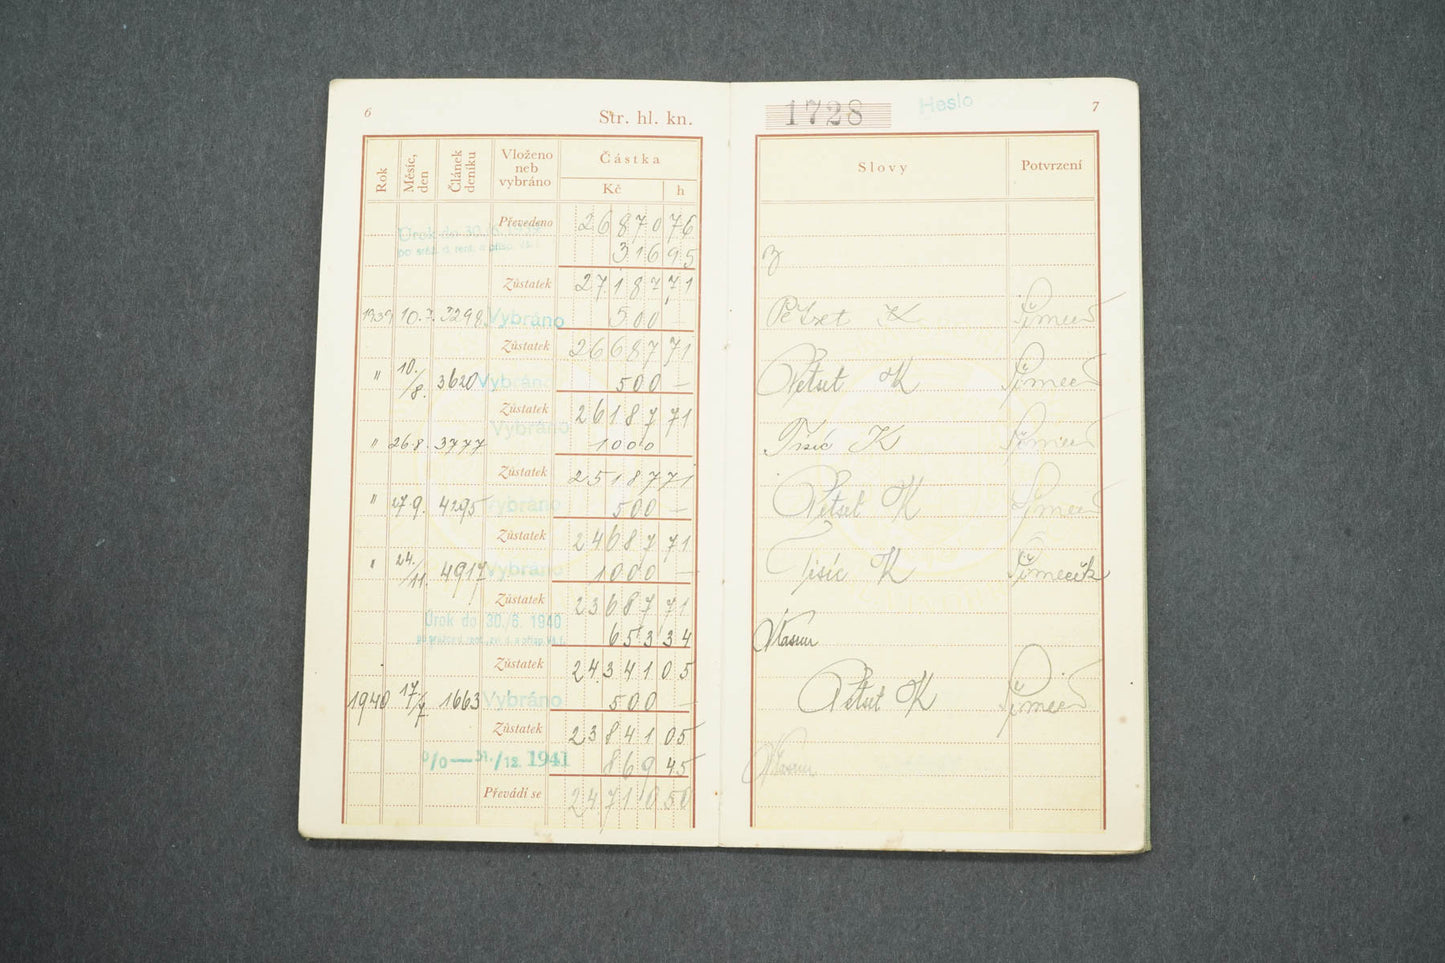 6
Str. hl. kn.
Rok Měsíc, den Článek deníku Vloženo neb vybráno Částka Kč h
Převedeno 26870 76
Úrok do 30./6.
316 95
Zůstatek 27187 71
1939 10.7. 3298 Vybráno 500 —
Zůstatek 26687 71
" 10./8. 3620 Vybráno 500 —
Zůstatek 26187 71
Vybráno
" 26.8. 3777 1000
Zůstatek 25187 71
" 27.9. 4295 Vybráno 500 —
Zůstatek 24687 71
" 24./11. 4917 Vybráno 1000 —
Zůstatek 23687 71
Úrok do 30./6. 1940
653 34
Zůstatek 24341 05
1940 17/7 1663 Vybráno 500 —
Zůstatek 23841 05
0/0 — 31./12. 1941 869 45
Převádí se 24710 50
1728 Heslo 7
Slovy Potvrzení
Pětset K
Pětset K
Tisíc K
Pětset K
Tisíc K Šimeček
Pětset K